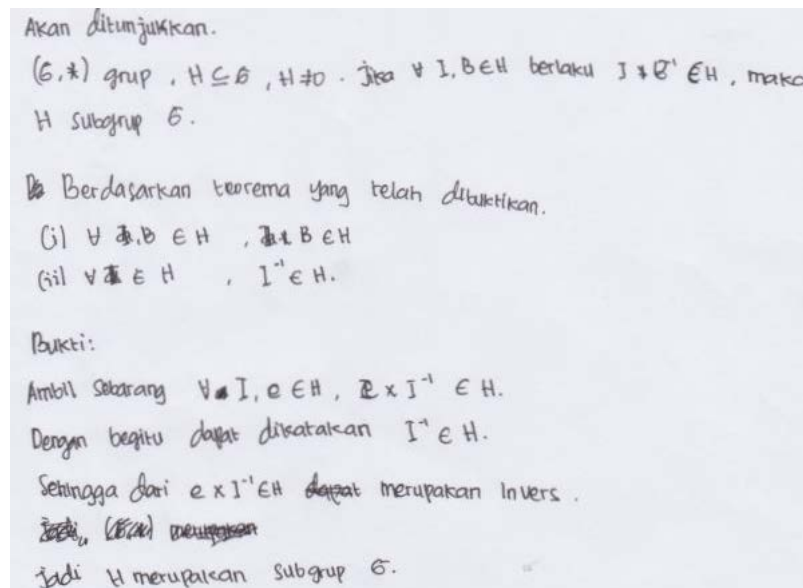 Akan ditunjukkan.
(G,*) grup, H ⊆ G, H≠0. Jika ∀ I,B∈H berlaku I * B⁻¹ ∈H, maka
H subgrup G.
Berdasarkan teorema yang telah dibuktikan.
(i) ∀ I,B ∈ H , I * B ∈ H
(ii) ∀ I ∈ H , I⁻¹ ∈ H.
Bukti:
Ambil Sebarang ∀ I, e ∈H, e x I⁻¹ ∈ H.
Dengan begitu dapat dikatakan I⁻¹ ∈ H.
Sehingga dari e x I⁻¹ ∈H merupakan Invers.
jadi H merupakan subgrup G.